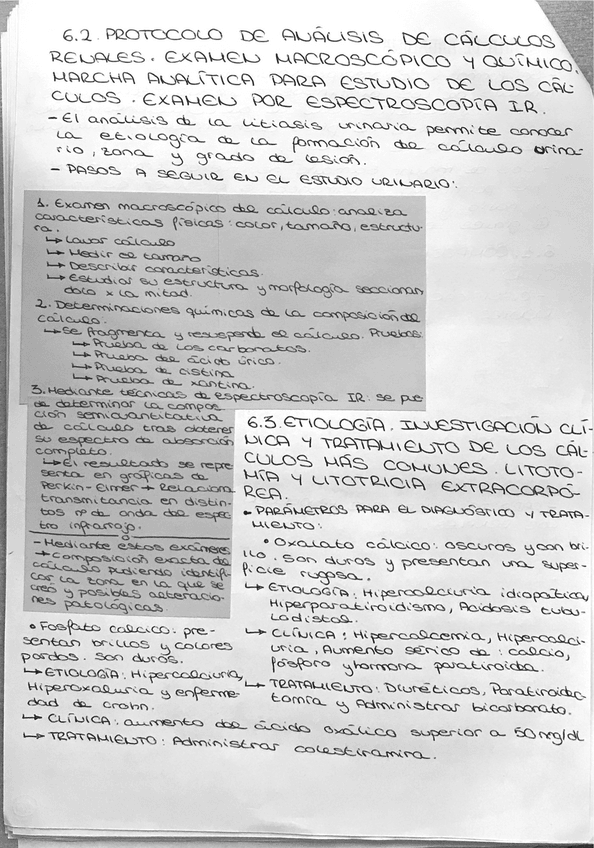 6.2. PROTOCOLO DE ANÁLISIS DE CÁLCULOS
RENALES. EXAMEN MACROSCÓPICO Y QUÍMICO.
MARCHA ANALÍTICA PARA ESTUDIO DE LOS CÁL-
CULOS. EXAMEN POR ESPECTROSCOPÍA IR.
- El análisis de la litiasis urinaria permite conocer
la etiología de la formación del cálculo urina-
rio, zona y grado de lesión.
- PASOS A SEGUIR EN EL ESTUDIO URINARIO:
1. Examen macroscópico del cálculo: analiza
características físicas: color, tamaño, estructu-
ra.
↳ Lavar cálculo
↳ Medir el tamaño
↳ Describir características.
↳ Estudiar su estructura y morfología seccionan
dolo x la mitad.
2. Determinaciones químicas de la composición del
cálculo:
↳ Se fragmenta y resuspende el cálculo. Pruebas:
↳ Prueba de los carbonatos.
↳ Prueba del ácido úrico.
↳ Prueba de cistina
↳ Prueba de xantina.
3. Mediante técnicas de espectroscopía IR: se pue
de determinar la compos
ción semicuantitativa
de cálculo tras obtener
su espectro de absorción
completo.
↳ El resultado se repre
senta en gráficas de
Perkin-Elmer → Relaciona
transmitancia en distin-
tos nº de onda del espec
tro infrarrojo.
- Mediante estos exámenes
→ Composición exacta de
cálculo pudiendo identifi-
car la zona en la que se
creó y posibles alteracio-
nes patológicas.
6.3. ETIOLOGÍA. INVESTIGACIÓN CLÍ-
NICA Y TRATAMIENTO DE LOS CÁL-
CULOS MÁS COMUNES. LITOTO-
MÍA Y LITOTRICIA EXTRACORPÓ-
REA.
- PARÁMETROS PARA EL DIAGNÓSTICO Y TRATA-
MIENTO:
• Oxalato cálcico: oscuros y con bri-
llo. Son duros y presentan una super-
ficie rugosa.
↳ ETIOLOGÍA: Hipercalciuria idiopática,
Hiperparatiroidismo, Acidosis tubu-
la distal.
↳ CLÍNICA: Hipercalcemia, Hipercalci-
uria, Aumento sérico de: calcio,
fósforo y hormona paratiroidea.
↳ TRATAMIENTO: Diuréticos, Paratiroidec-
tomía y Administrar bicarbonato.
• Fosfato cálcico: pre-
sentan brillos y colores
pardos. Son duros.
↳ ETIOLOGÍA: Hipercalciuria,
Hiperoxaluria y enferme-
dad de crohn.
↳ CLÍNICA: aumento del ácido oxálico superior a 50 mg/dl
↳ TRATAMIENTO: Administrar colestiramina.